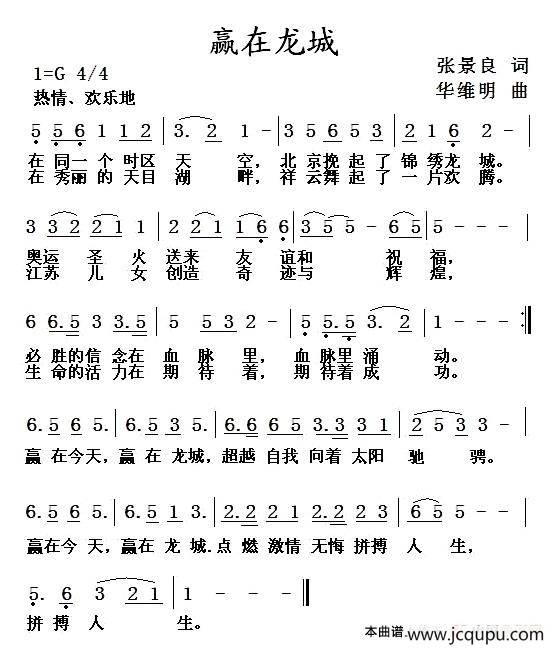 赢在龙城
1=G 4/4
张景良 词
热情、欢乐地
华维明 曲
5 5 6 1 1 2 | 3. 2 1 - | 3 5 6 5 3 | 2 1 6 2 - |
在 同一个 时区 天 空, 北 京挽 起 了 锦 绣龙 城。
在 秀丽 的 天目 湖 畔, 祥 云舞 起 了 一 片欢 腾。
3 3 2 2 1 1 | 2 2 1 1 6 6 | 3 5 - 6 | 5 - - - |
奥运 圣 火 送来 友 谊和 祝 福,
江苏 儿 女 创造 奇 迹与 辉 煌,
6 6.5 3 3.5 | 5 5 5 5 3 - | 5 5.5 3. 2 | 1 - - - :||
必 胜的信 念在 血 脉 里, 血 脉里 涌 动。
生 命的活 力在 期 待 着, 期 待着 成 功。
6. 5 6 5. | 6. 5 1 3. | 6. 6 6 5 3. 3 3 1 | 2 5 3 - - |
赢 在今天, 赢 在 龙城, 超越 自我 向着 太阳 驰 骋。
6. 5 6 5. | 6. 5 1 3. | 2. 2 2 1 2. 2 2 3 | 6 5 5 - - |
赢在今 天, 赢在 龙 城.点 燃 激情 无悔 拼搏 人 生,
5. 6 3 2 1 | 1 - - - ||
拼 搏 人 生。
本曲谱 www.jcqupu.com